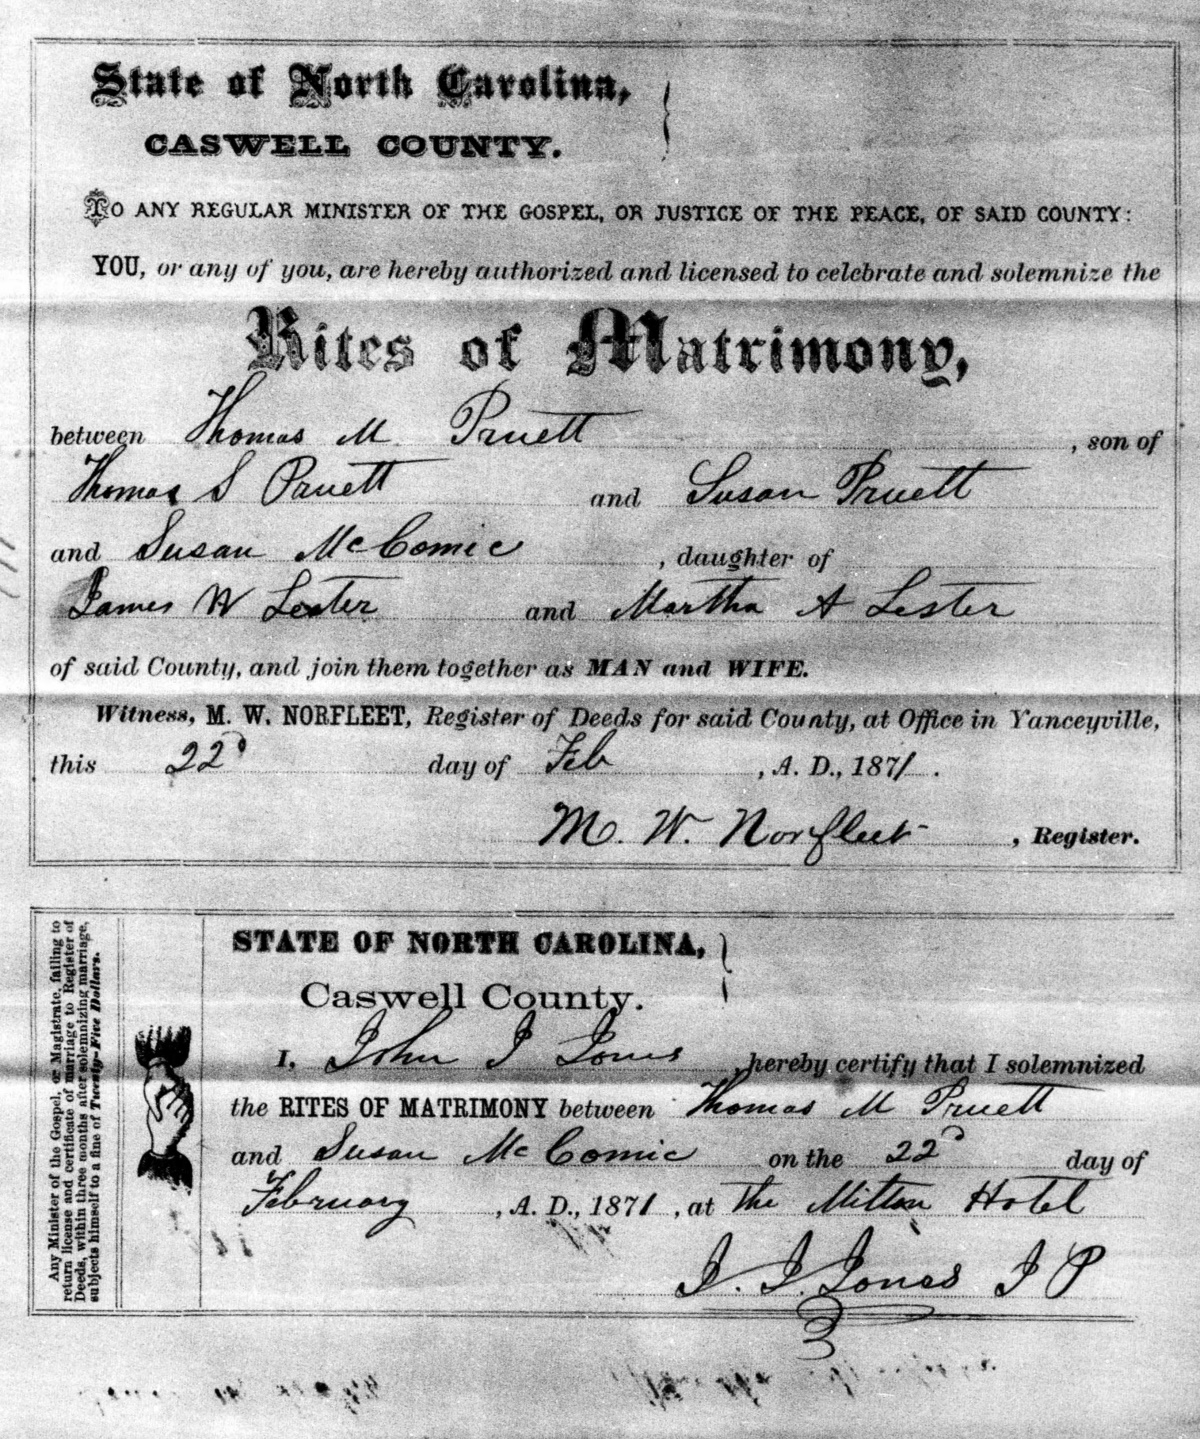 State of North Carolina,
CASWELL COUNTY.
TO ANY REGULAR MINISTER OF THE GOSPEL, OR JUSTICE OF THE PEACE, OF SAID COUNTY:
YOU, or any of you, are hereby authorized and licensed to celebrate and solemnize the
Rites of Matrimony,
between Thomas M Pruett, son of
Thomas S Pruett and Susan Pruett
and Susan McComic, daughter of
James W Lester and Martha A Lester
of said County, and join them together as MAN and WIFE.
Witness, M. W. NORFLEET, Register of Deeds for said County, at Office in Yanceyville,
this 22d day of Feb, A. D., 1871.
M. W. Norfleet, Register.
Any Minister of the Gospel, or Magistrate, failing to
return license and certificate of marriage to Register of
Deeds, within three months after solemnizing marriage,
subjects himself to a fine of Twenty-Five Dollars.
STATE OF NORTH CAROLINA,
Caswell County.
I, John J Jones, hereby certify that I solemnized
the RITES OF MATRIMONY between Thomas M Pruett
and Susan McComic on the 22d day of
February, A. D., 1871, at The Milton Hotel
J. J. Jones J P